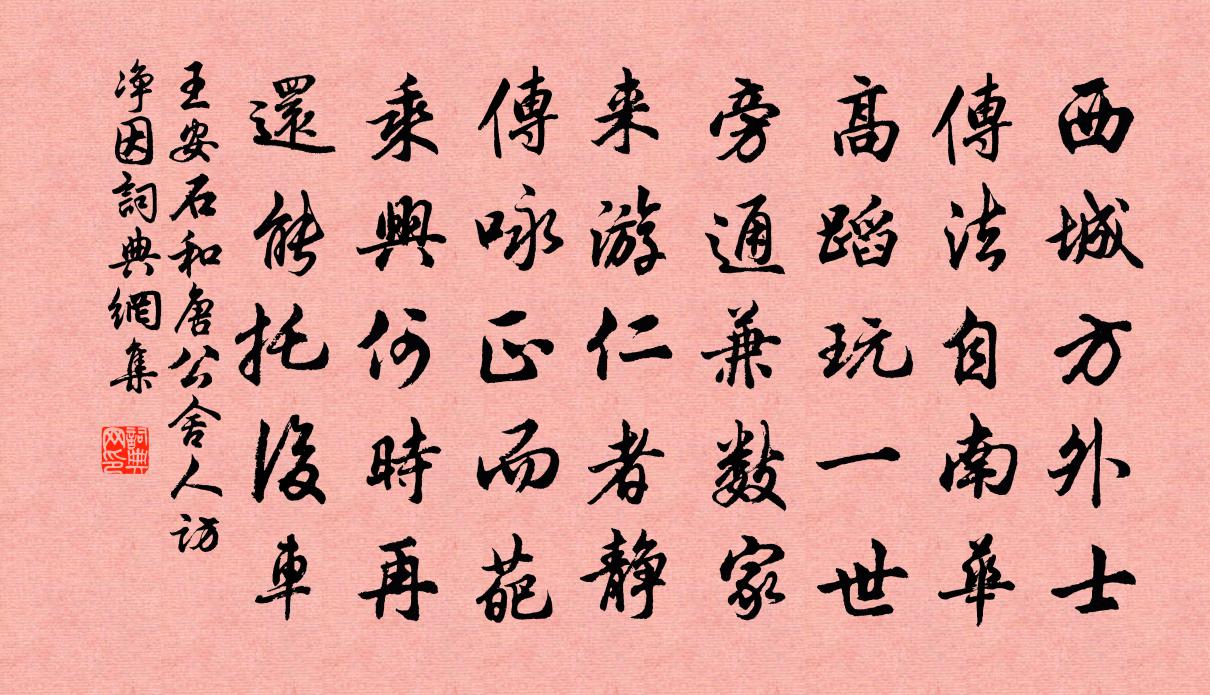 西城方外士
傳法自南華
高蹈玩一世
旁通兼数家
来游仁者静
傳咏正而葩
乘興何時再
還能托後車
王安石和唐公舍人訪
净因詞典網集
詞典网印